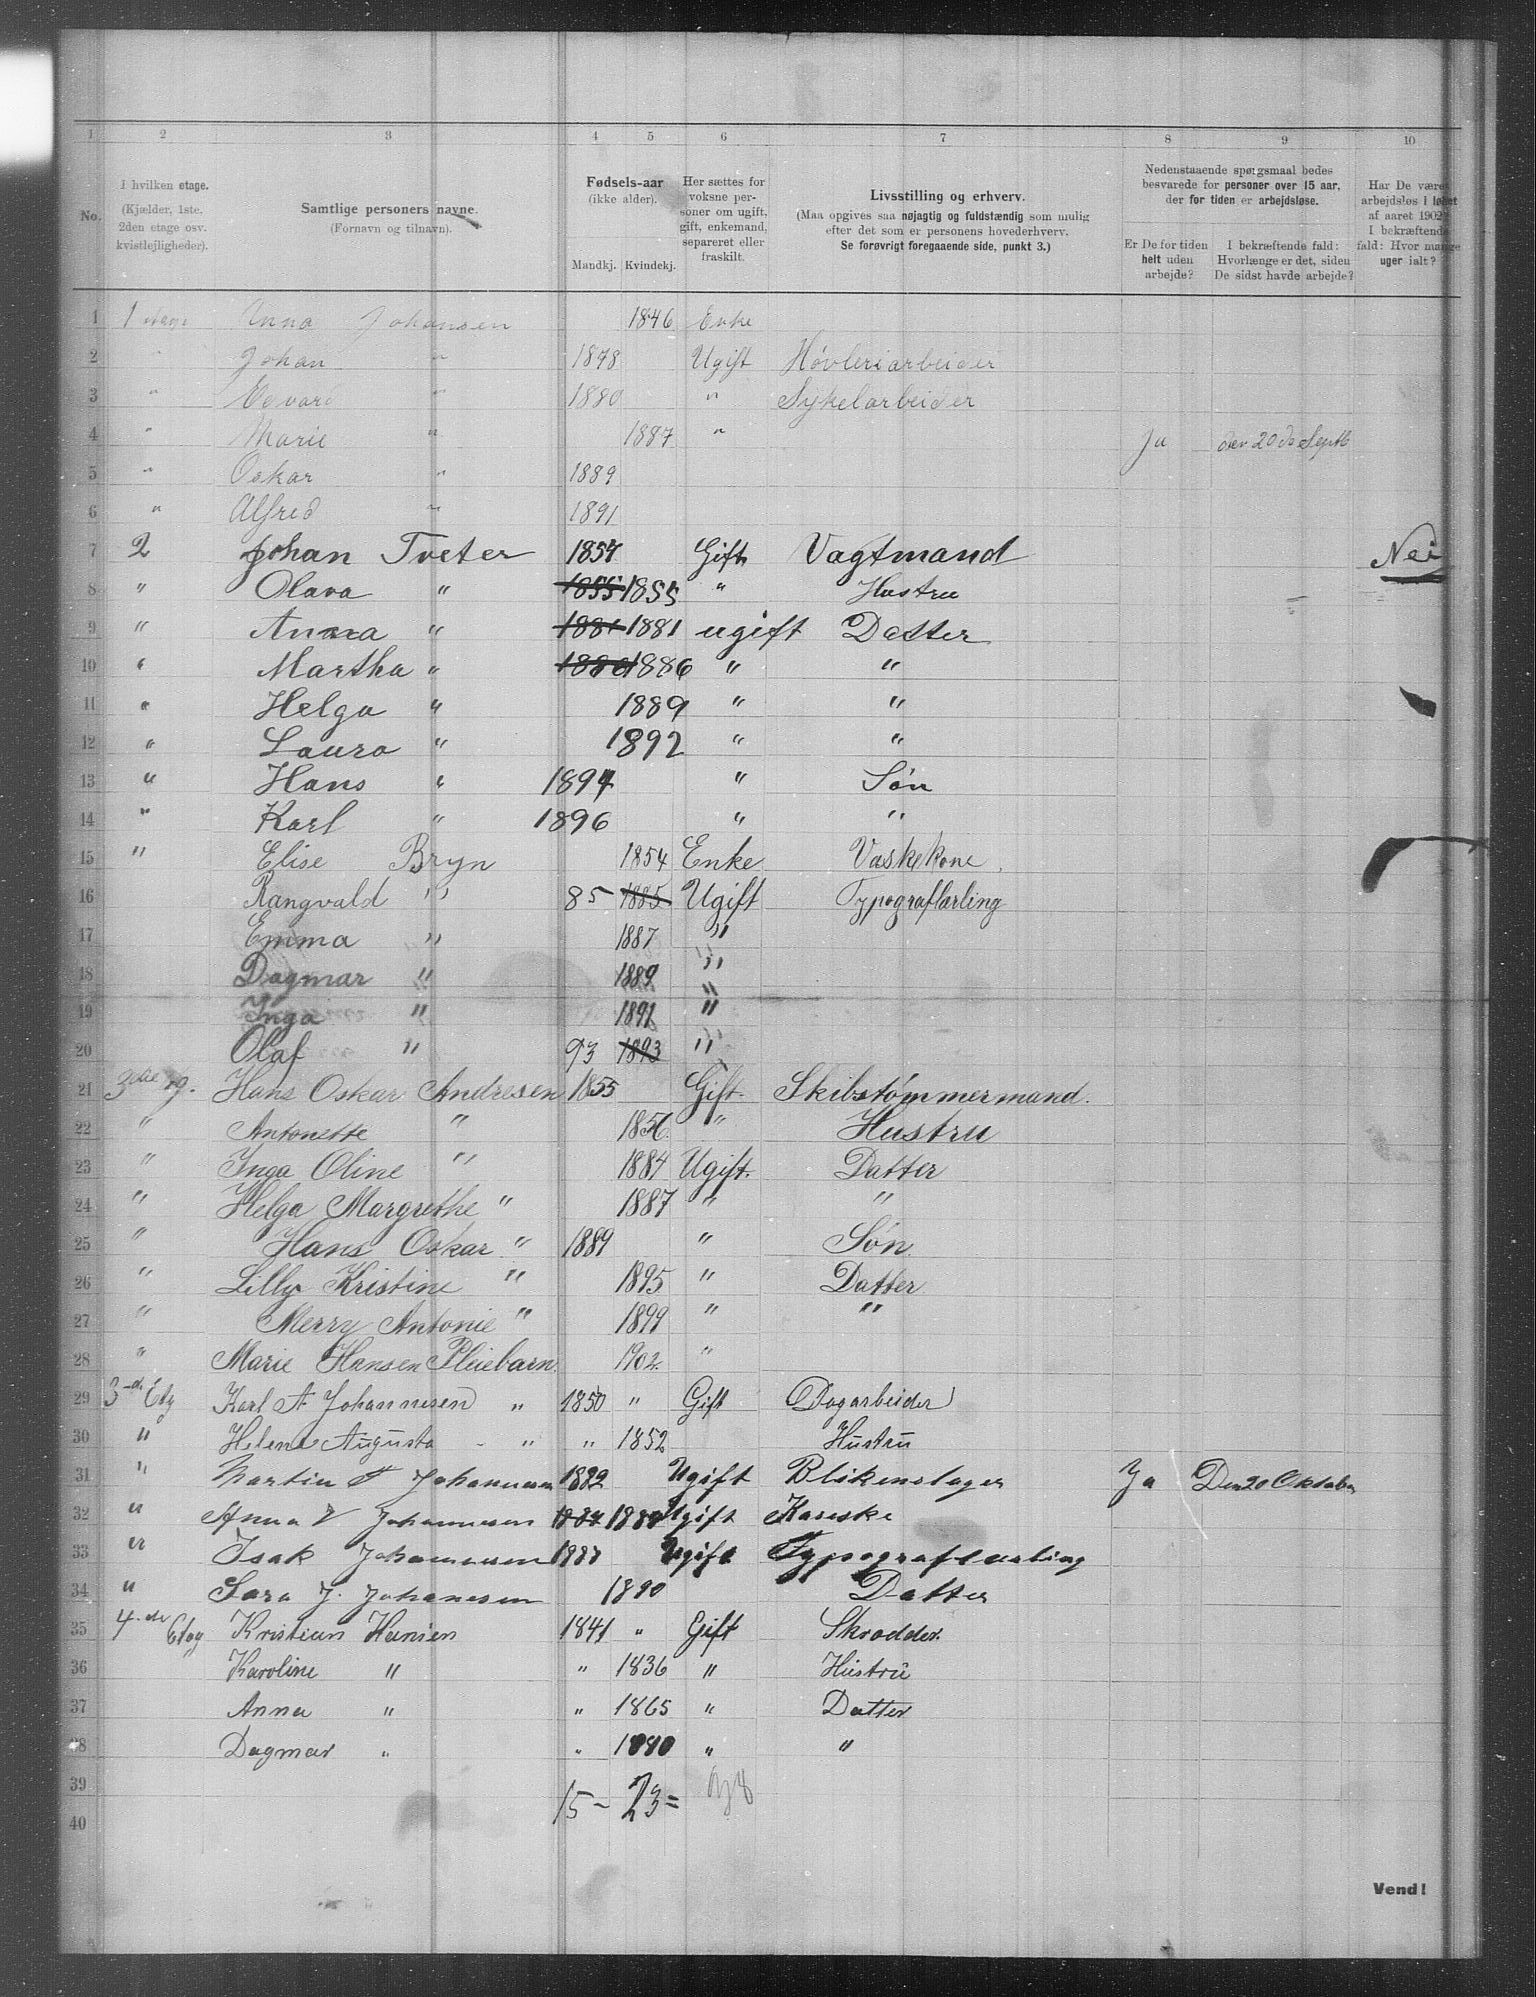 1 2 3 4 5 6 7 8 9 10
No. I hvilken etage. (Kjælder, 1ste. 2den etage osv. kvistlejligheder).
Samtlige personers navne. (Fornavn og tilnavn).
Fødsels-aar (ikke alder). Mandkj. Kvindekj.
Her sættes for voksne personer om ugift, gift, enkemand, separeret eller fraskilt.
Livsstilling og erhverv. (Maa opgives saa nøjagtig og fuldstændig som mulig efter det som er personens hovederhverv. Se forøvrigt foregaaende side, punkt 3.)
Nedenstaaende spørgsmaal bedes besvarede for personer over 15 aar, der for tiden er arbejdsløse.
Er De for tiden helt uden arbejde?
I bekræftende fald: Hvorlænge er det, siden De sidst havde arbejde?
Har De været arbejdsløs i løbet af aaret 1902? I bekræftende fald: Hvor mange uger ialt?
1 1 etage Anna Johansen 1846 Enke
2 " Johan " 1878 Ugift Høvleriarbeider
3 " Edvard " 1880 " Sykelarbeider
4 " Marie " 1887 " Ja den 20de Septb
5 " Oskar " 1889
6 " Alfred " 1891
7 2 Johan Tveter 1857 Gift Vagtmand Nei
8 " Olava " 1855 1855 " Hustru
9 " Anna " 1881 1881 ugift Datter
10 " Martha " 1886 1886 " "
11 " Helga " 1889 " "
12 " Laura " 1892 " "
13 " Hans " 1894 " Søn
14 " Karl " 1896 " "
15 " Elise Bryn 1854 Enke Vaskekone
16 Rangvald " 85 1885 Ugift Typograflærling
17 Emma " 1887 "
18 Dagmar " 1889 "
19 Inga " 1891 "
20 Olaf " 93 1893 "
21 3die Hans Oskar Andresen 1855 Gift Skibstømmermand.
22 " Antonette " 1856. " Hustru
23 " Inga Oline " 1884 Ugift. Datter
24 " Helga Margrethe " 1887 " "
25 " Hans Oskar " 1889 " Søn.
26 " Lilly Kristine " 1895 " Datter
27 " Merry Antonie " 1899 " "
28 " Marie Hansen Pleiebarn 1902. "
29 3de Etg Karl A Johannesen " 1850 " Gift Dagarbeider
30 " Helene Augusta - " " 1852 Hustru
31 " Martin Johannesen 1882 Ugift Blikenslager Ja Den 20 Oktober
32 " Anna Johannesen 1884 Ugift
33 " Isak Johannesen 1887 Ugift Typograflærling
34 " Sara J. Johanesen 1890 Datter
35 4de Etag Kristian Hansen 1841 " Gift Skrædder
36 Karoline " " 1836 " Hustru
37 Anna " " 1865 " Datter
38 Dagmar " " 1880 " "
39 15 - 23 =
40
Vend!